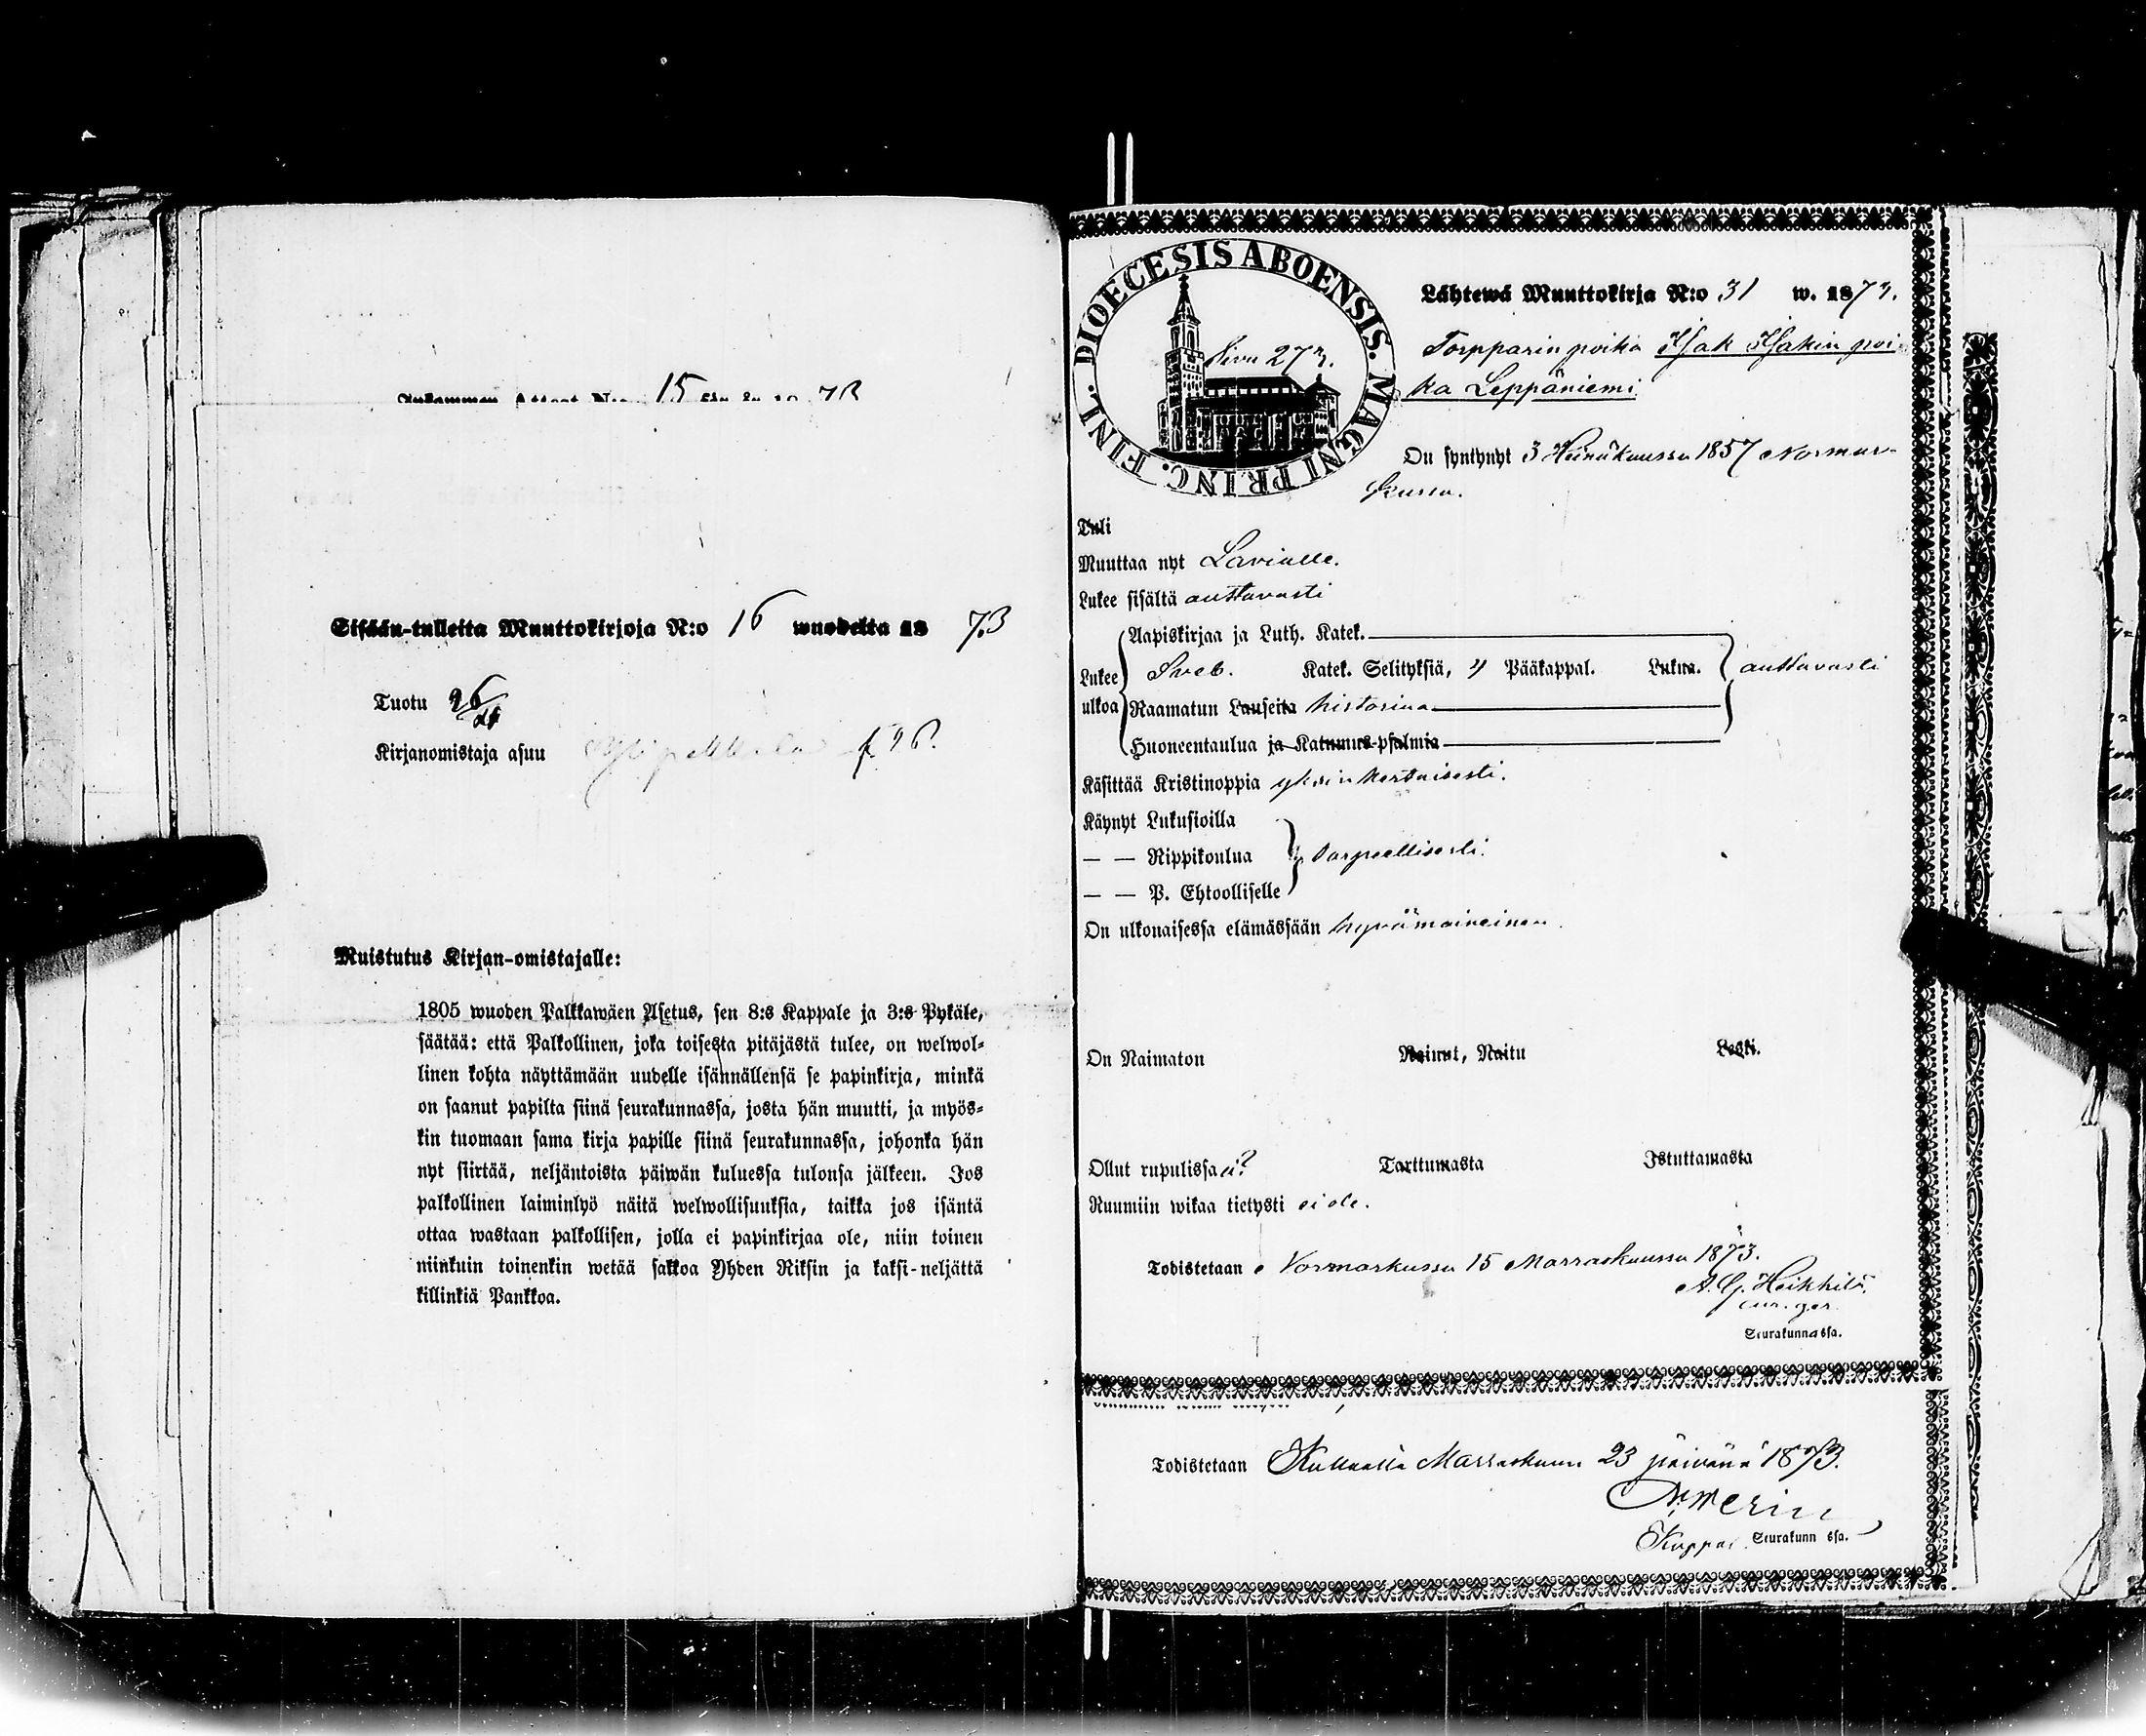 Inkommen Attest N:o 15 för år 18 73
Sisään-tulleita Muuttokirjoja N:o 16 wuodelta 18 73
Tuotu 26/11
Kirjanomistaja asuu f. 96.
Muistutus Kirjan-omistajalle:
1805 wuoden Palkkawäen Asetus, sen 8:s Kappale ja 3:s Pykäle,
säätää: että Palkollinen, joka toisesta pitäjästä tulee, on welwol-
linen kohta näyttämään uudelle isännällensä se papinkirja, minkä
on saanut papilta siinä seurakunnassa, josta hän muutti, ja myös-
kin tuomaan sama kirja papille siinä seurakunnassa, johonka hän
nyt siirtää, neljäntoista päiwän kuluessa tulonsa jälkeen. Jos
palkollinen laiminlyö näitä welwollisuuksia, taikka jos isäntä
ottaa wastaan palkollisen, jolla ei papinkirjaa ole, niin toinen
niinkuin toinenkin wetää sakkoa Yhden Riksin ja kaksi-neljättä
killinkiä Pankkoa.
DIOECESIS ABOENSIS. MAGNI PRINC. FINL.
Sivu 273.
Lähtewä Muuttokirja N:o 31 w. 1873.
Torpparin poika Isak Isakin poi-
ka Leppäniemi
On syntynyt 3 Heinäkuussa 1857 Normar-
kussa.
Tuli
Muuttaa nyt Lavialle.
Lukee sisältä auttavasti
Lukee ulkoa
Aapiskirjaa ja Luth. Katek.
Sveb. Katek. Selityksiä, 4 Pääkappal. Lukua. auttavasti
Raamatun Lauseita historiaa
Huoneentaulua ja Katumus-psalmia
Käsittää Kristinoppia yksinkertaisesti.
Käynyt Lukusioilla
— — Rippikoulua tarpeellisesti.
— — P. Ehtoolliselle
On ulkonaisessa elämässään hyvämaineinen.
On Naimaton Nainut, Naitu Leski.
Ollut rupulissa ei? Tarttumasta Istuttamasta
Ruumiin wikaa tietysti ei ole.
Todistetaan Normarkussa 15 Marraskuussa 1873.
A. G. Heikkilä.
cur. ger.
Seurakunnassa.
Todistetaan Kullaalla Marraskuun 23 päivänä 1873.
Kappal. Seurakunn ssa.